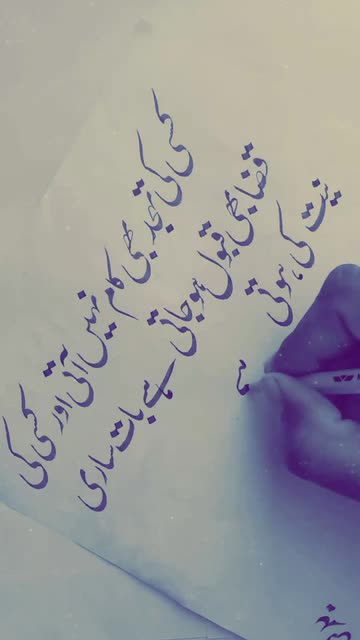 کسی کی تہجد بھی کام نہیں آتی اور کسی کی
قضا بھی قبول ہو جاتی ہے بات ساری
نیت کی ہوتی
ہے